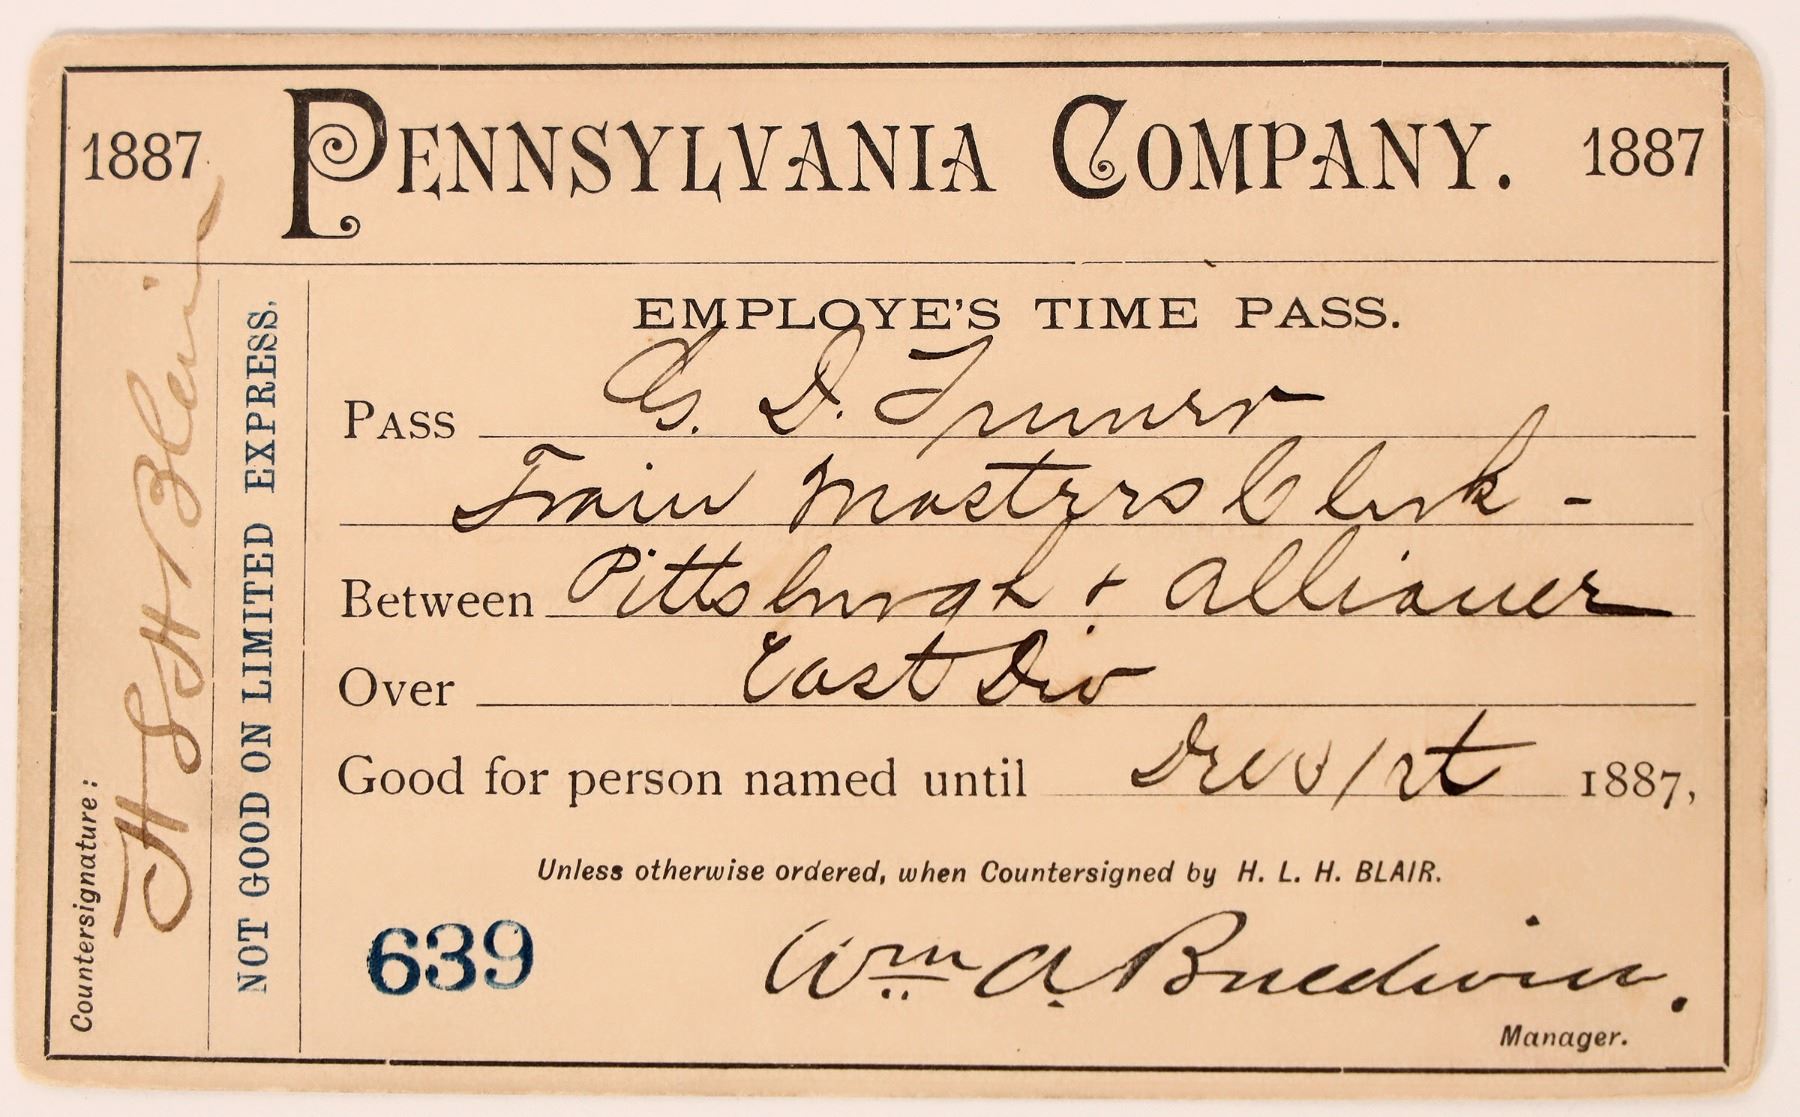 1887 PENNSYLVANIA COMPANY. 1887
EMPLOYE'S TIME PASS.
PASS G. D.
Train Masters Clerk -
Between Pittsburgh & Alliance
Over East Div
Good for person named until Dec 31st 1887,
Unless otherwise ordered, when Countersigned by H. L. H. BLAIR.
639
Wm A Baldwin.
Manager.
NOT GOOD ON LIMITED EXPRESS.
Countersignature:
H L H Blair